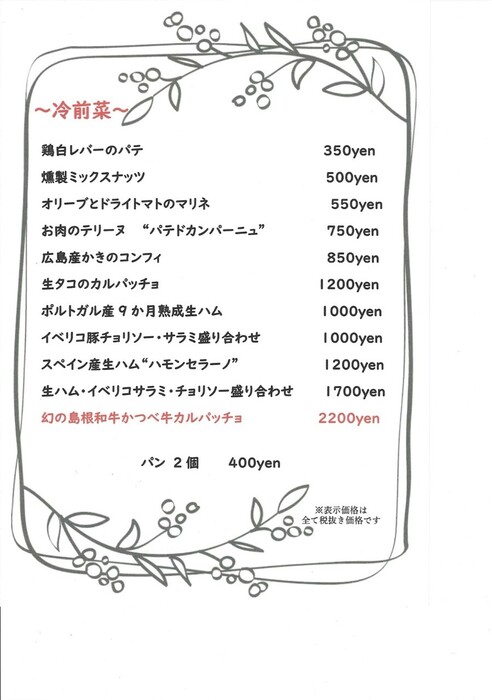 ～冷前菜～
鶏白レバーのパテ 350yen
燻製ミックスナッツ 500yen
オリーブとドライトマトのマリネ 550yen
お肉のテリーヌ “パテドカンパーニュ” 750yen
広島産かきのコンフィ 850yen
生タコのカルパッチョ 1200yen
ポルトガル産9か月熟成生ハム 1000yen
イベリコ豚チョリソー・サラミ盛り合わせ 1000yen
スペイン産生ハム“ハモンセラーノ” 1200yen
生ハム・イベリコサラミ・チョリソー盛り合わせ 1700yen
幻の島根和牛かつべ牛カルパッチョ 2200yen
パン 2個 400yen
※表示価格は
全て税抜き価格です